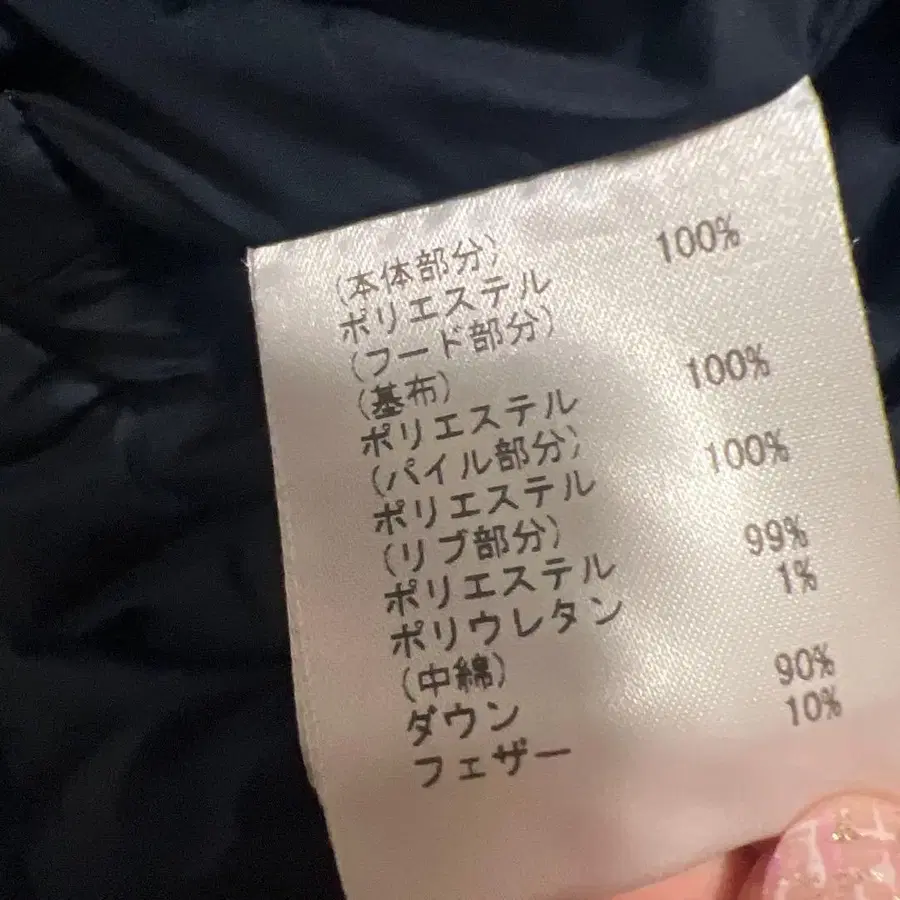 (本体部分)
ポリエステル 100%
(フード部分)
(基布)
ポリエステル 100%
(パイル部分)
ポリエステル 100%
(リブ部分)
ポリエステル 99%
ポリウレタン 1%
(中綿)
ダウン 90%
フェザー 10%